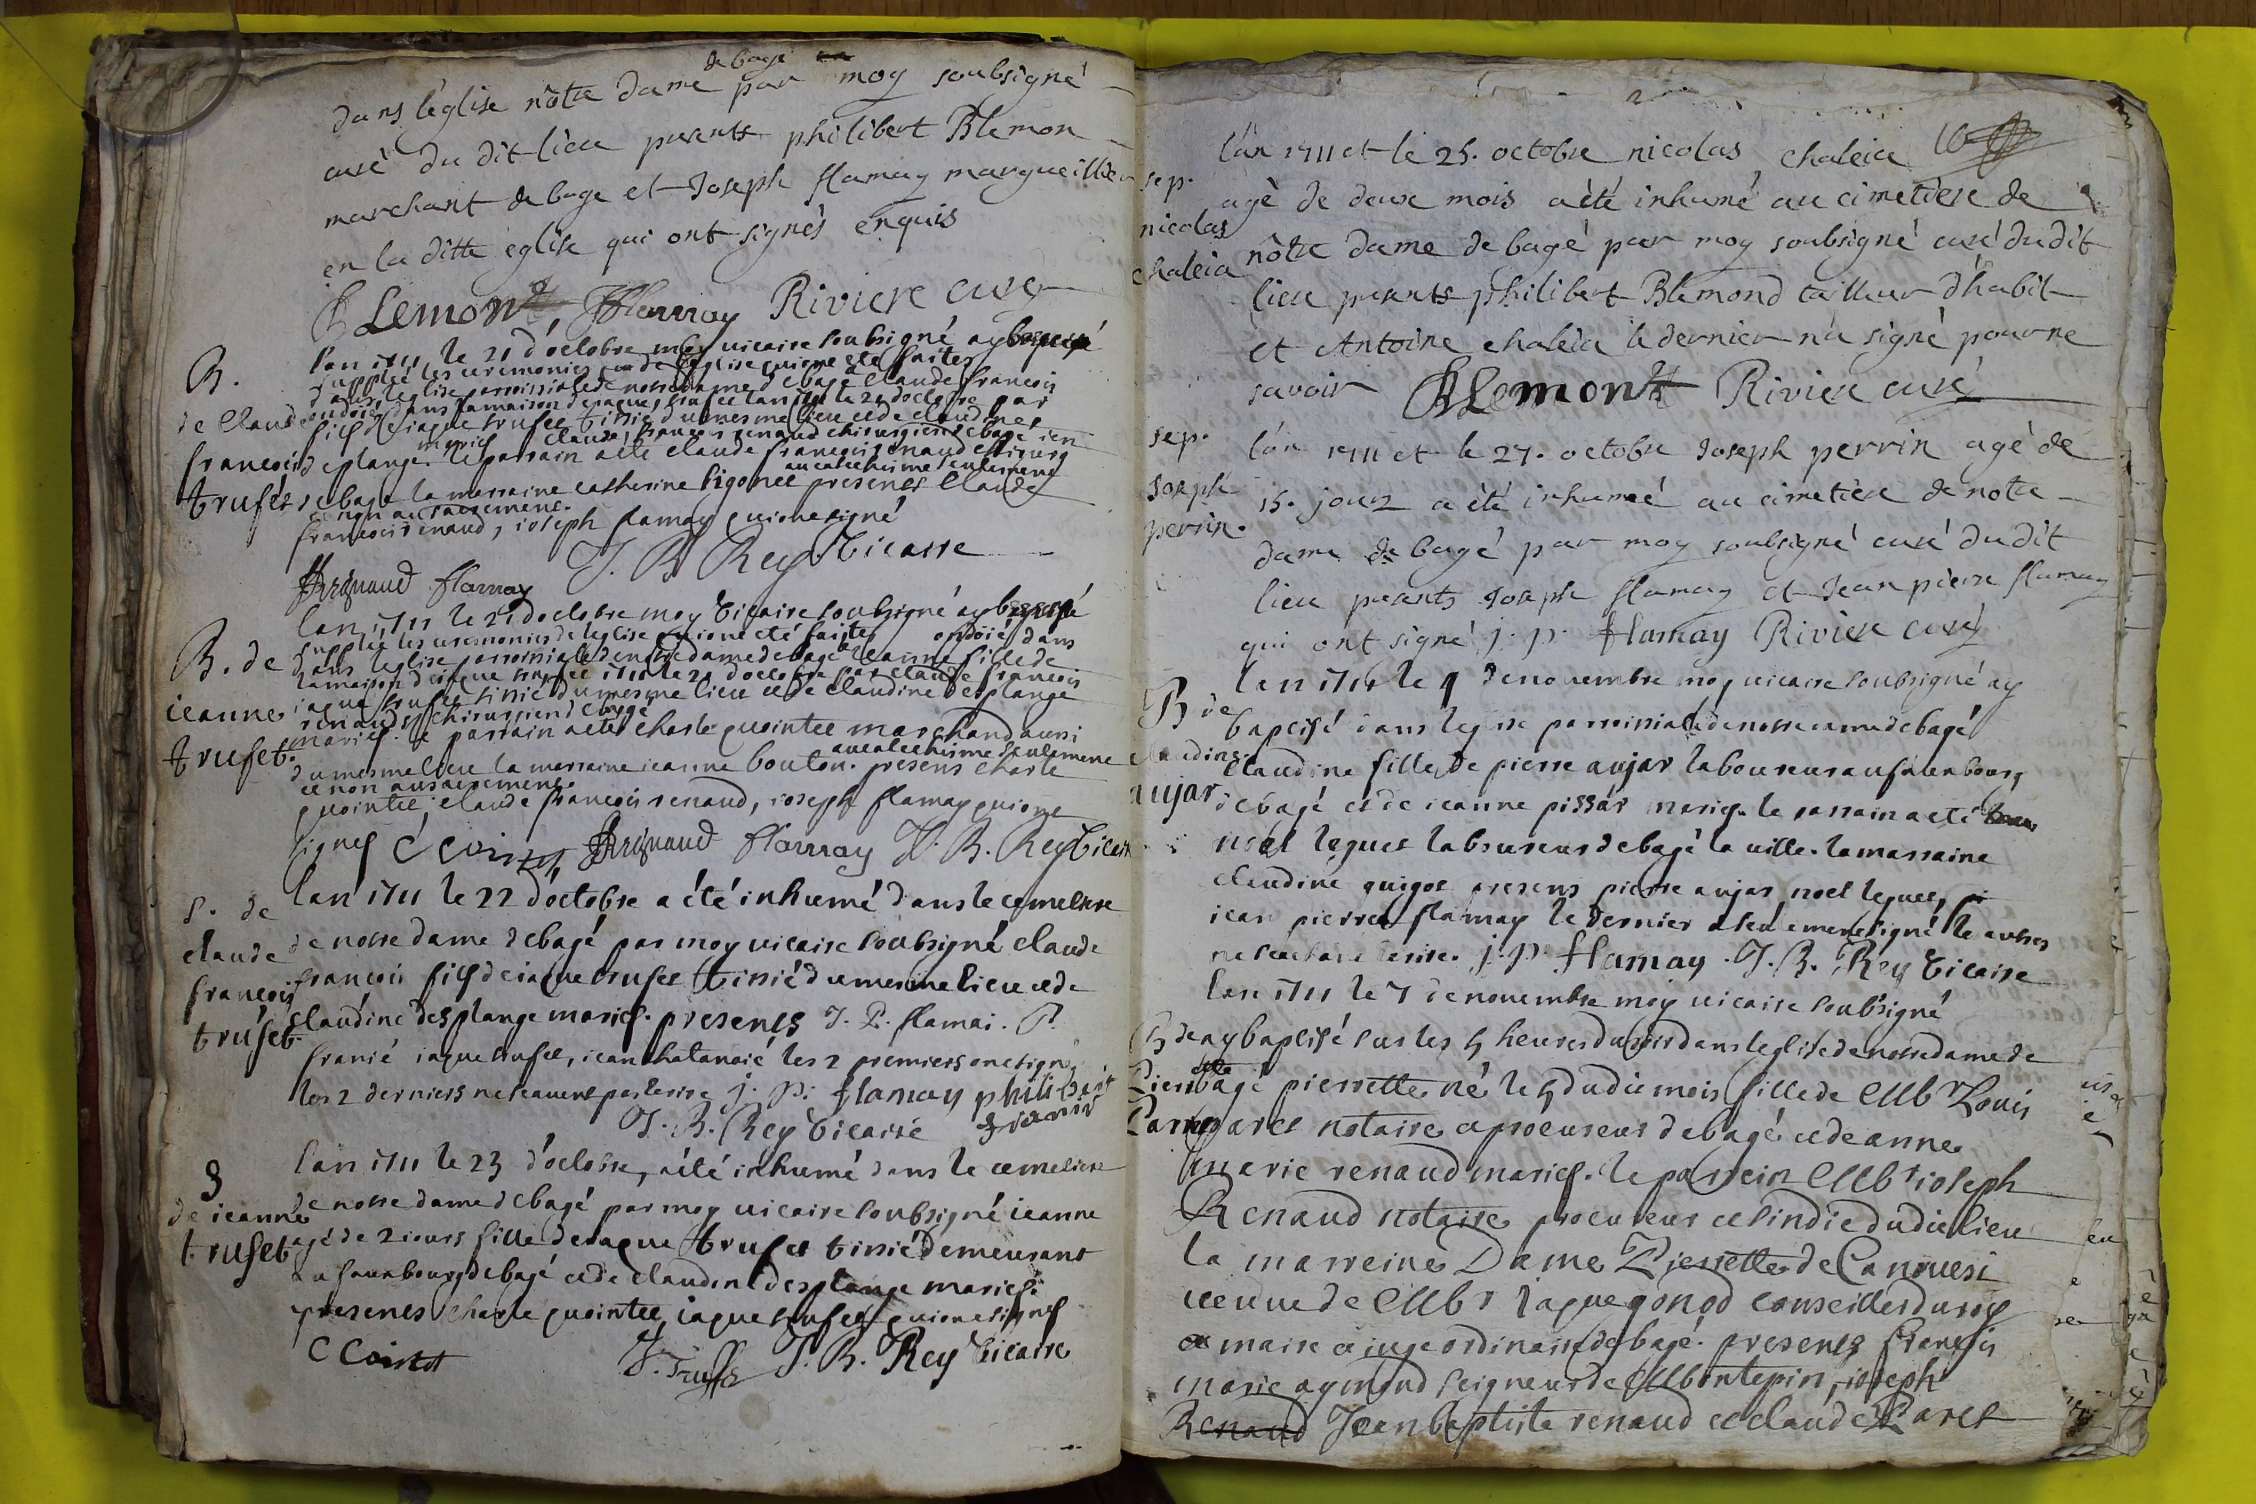 de bagé
dans l'eglise nôtre dame par moy soubsigné
curé du dit lieu presents philibert Blemon
marchant de bage et Joseph flamay margueillier
en la ditte eglise qui ont signés enquis
BLemond JFlamay Riviere curé
B.
de Claude
francois
trufet
lan 1711 le 21 d'octobre moy vicaire soubsigné ay
supplée les ceremonies de l'eglise qui ont eté faites
dans l'eglise parroissiale de nostre dame de bagé a Claude francois
ondoié dans la maison de iaque trufet lan 1711 le 21 d'octobre par
fils de iaque trufet tissié du mesme lieu et de claudine
claude francois renaud chirurgien de bagé
desplange mariés le parrain a eté claude francois renaud chirurg
au catechisme seulement
de bagé la marraine catherine presents Claude
et non au sacrement.
francois renaud, ioseph flamay qui ont signé
renaud flamay J. B. Rey Vicaire
B. de
ieanne
trufet.
lan 1711 le 21 d'octobre moy vicaire soubsigné ay
supplée les ceremonies de leglise qui ont eté faites ondoié dans
dans leglise parroissiale de nostre dame de bagé a ieanne fille de
la maison de iaque trufet 1711 le 21 d'octobre par claude francois
iaque trufet tissié du mesme lieu et de claudine desplange
renaud chirurgien de bagé
mariés. le parrain a eté charle quointet marchand aussi
au catechisme seulement
du mesme lieu la marraine ieanne bouton. presens charle
et non au sacrement.
quointet, claude francois renaud, ioseph flamay qui ont
signes C Cointet renaud flamay J. B. Rey Vicaire
S. de
claude
francois
trufet.
lan 1711 le 22 d'octobre a été inhumé dans le cemetiere
de nostre dame de bagé par moy vicaire soubsigné claude
francois fils de iaque trufet tissié du mesme lieu et de
claudine desplange mariés. presents J. P. flamai. P.
franié iaque trufet, iean les 2 premiers ont signé
les 2 derniers ne scavent pas ecrire j. p. flamay philibert
J. B. Rey Vicaire
S
de ieanne
trufet
lan 1711 le 23 d'octobre, a été inhumé dans le cemetiere
de nostre dame de bagé par moy vicaire soubsigné ieanne
agé de 2 iours fille de iaque trufet tissié demeurant
au fauxbourg de bagé et de claudine desplange mariés.
presents charle quointet, iaque trufet qui ont signés
C Cointet J. Truffet J. B. Rey Vicaire
sep.
nicolas
chaleia
l'an 1711 et le 25. octobre nicolas chaleia
agé de deux mois a été inhumé au cimetiere de
nôtre dame de bagé par moy soubsigné curé du dit
lieu presents philibert Blemond tailleur d'habit
et Antoine chaleia le dernier n'a signé pour ne
savoir BLemond Riviere curé
sep.
Joseph
perrin.
l'an 1711 et le 27. octobre Joseph perrin agé de
15. jours a été inhumé au cimetiere de notre
dame de bagé par moy soubsigné curé du dit
lieu presents Joseph flamay et Jean pierre flamay
qui ont signé j. p. flamay Riviere curé
B de
claudine
aujar
lan 1711 le 1 de novembre moy vicaire soubsigné ay
baptisé dans leglise parroissiale de nostre dame de bagé
claudine fille de pierre aujar laboureur au fauxbourg
de bagé et de ieanne pissar mariés. le parrain a eté
noel leguet laboureur de bagé la ville. la marraine
claudine guigot presens pierre aujar noel leguet,
iean pierre flamay le dernier a seulement signé le autres
ne scachant ecrire. j. p. flamay. J. B. Rey Vicaire
B de
Pierrette
Paret
lan 1711 le 7 de novembre moy vicaire soubsigné
ay baptisé sur les 5 heures du soir dans leglise de nostre dame de
bagé pierrette né le 5 du dit mois fille de Mr Louis
paret notaire et procureur de bagé et de anne
marie renaud mariés. le parrein Mr ioseph
Renaud notaire procureur et sindic du dit lieu
la marreine Dame Pierrette de
veuve de Mr Jaque gonod conseiller du roy
et maire et juge ordinaire de bagé. presents francois
marie aymond seigneur de Montepin, ioseph
Renaud Jean baptiste renaud et claude Paret